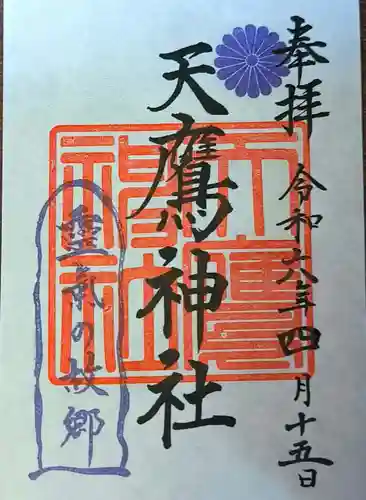 奉拝
令和六年四月十五日
天鷹神社
天鷹神社
靈氣の故郷